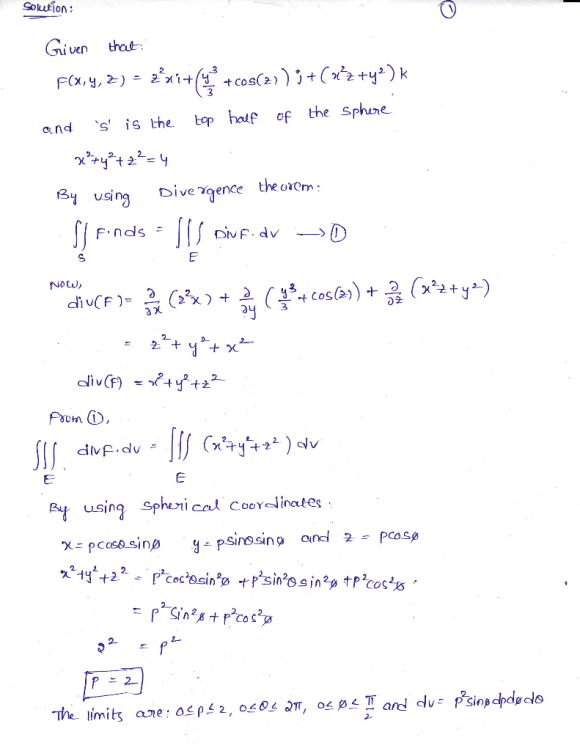 Solution: ①
Given that:
F(x, y, z) = z²xi + (y³/3 + cos(z)) j + (x²z + y²) k
and 's' is the top half of the sphere
x² + y² + z² = 4
By using Divergence theorem:
∬_S F·nds = ∭_E DivF·dv ⟶ ①
Now,
div(F) = ∂/∂x (z²x) + ∂/∂y (y³/3 + cos(z)) + ∂/∂z (x²z + y²)
= z² + y² + x²
div(F) = x² + y² + z²
From ①,
∭_E divF·dv = ∭_E (x² + y² + z²) dv
By using spherical coordinates:
x = ρcosθsinφ y = ρsinθsinφ and z = ρcosφ
x² + y² + z² = ρ²cos²θsin²φ + ρ²sin²θsin²φ + ρ²cos²φ
= ρ²sin²φ + ρ²cos²φ
2² = ρ²
ρ = 2
The limits are: 0≤ρ≤2, 0≤θ≤2π, 0≤φ≤π/2 and dv = ρ²sinφdρdφdθ